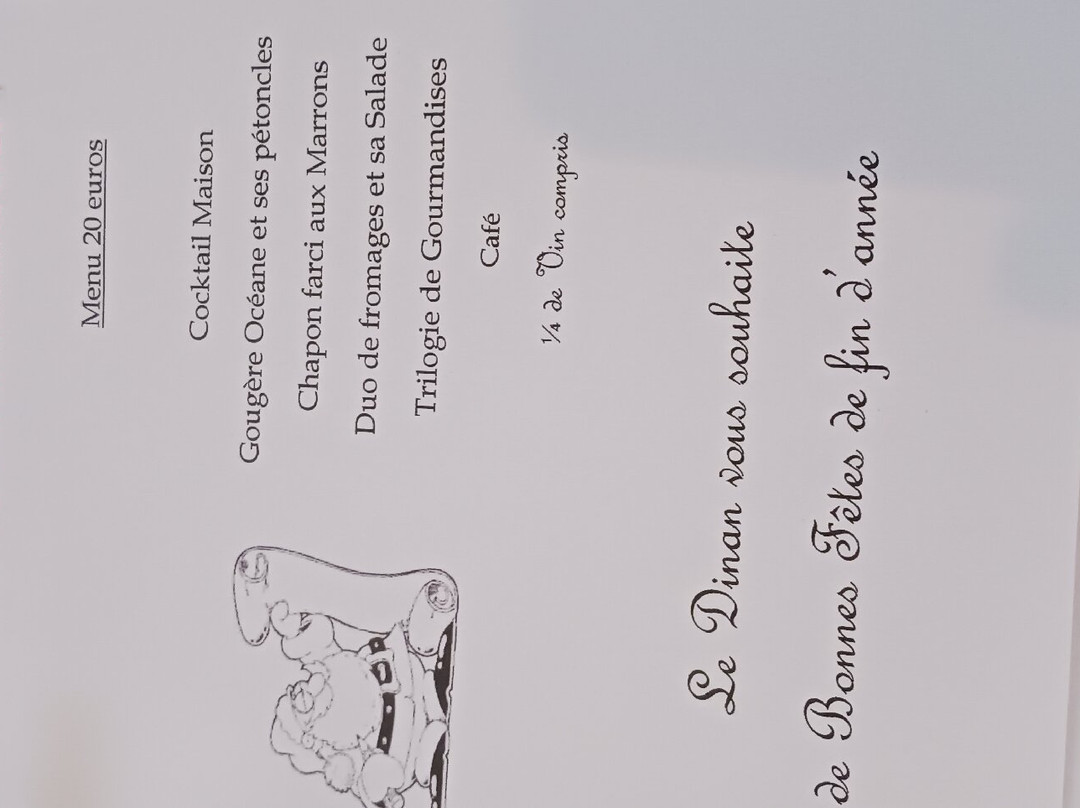 Menu 20 euros
Cocktail Maison
Gougère Océane et ses pétoncles
Chapon farci aux Marrons
Duo de fromages et sa Salade
Trilogie de Gourmandises
Café
¼ de Vin compris
Le Dinan vous souhaite
de Bonnes Fêtes de fin d'année